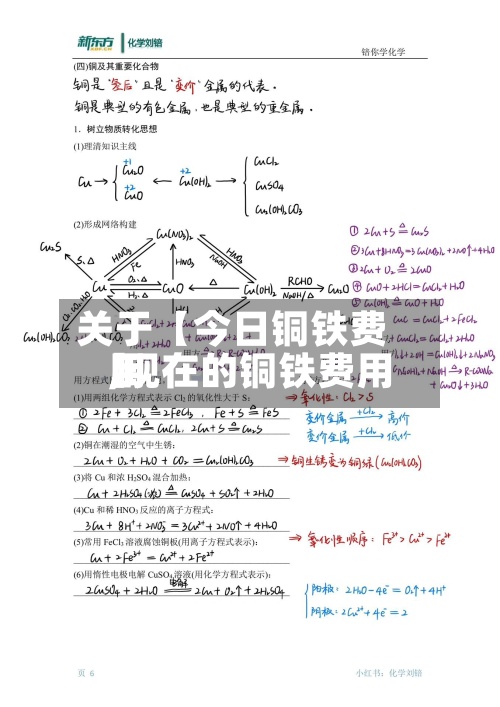 新东方 化学刘锴
锴你学化学
(四)铜及其重要化合物
铜是“氢后”且是“变价”金属的代表。
铜是典型的有色金属,也是典型的重金属。
1．树立物质转化思想
(1)理清知识主线
Cu → { +1 Cu₂O +2 CuO ← +2 Cu(OH)₂ → { CuCl₂ CuSO₄ Cu₂(OH)₂CO₃
(2)形成网络构建
Cu(NO₃)₂
Cu₂S
S、△
HNO₃
Fe
HNO₃
HNO₃
NaOH
Cu
O₂、△
H₂、△
CuO
△
Cu(OH)₂
RCHO
NaOH/△
Cu₂O
① 2Cu+S △= Cu₂S
② 3Cu+8HNO₃=3Cu(NO₃)₂+2NO↑+4H₂O
③ 2Cu+O₂ △= 2CuO
④ CuO+2HCl=CuCl₂+H₂O
⑤ Cu(OH)₂ △= CuO+H₂O
关于
今日铜铁费
现在的铜铁费用
(1)用两组化学方程式表示 Cl₂的氧化性大于 S:
⇒ 氧化性: Cl₂>S
① 2Fe+3Cl₂ △= 2FeCl₃ , Fe+S △= FeS
② Cu+Cl₂ △= CuCl₂ , 2Cu+S △= Cu₂S
变价金属 +Cl₂→ 高价
变价金属 → 低价
(2)铜在潮湿的空气中生锈:
2Cu+O₂+H₂O+CO₂=Cu₂(OH)₂CO₃
⇒ 铜生锈变为铜绿(Cu₂(OH)₂CO₃)
(3)将 Cu 和浓 H₂SO₄混合加热:
Cu+2H₂SO₄(浓) △= CuSO₄+SO₂↑+2H₂O
(4)Cu 和稀 HNO₃反应的离子方程式:
3Cu+8H⁺+2NO₃⁻=3Cu²⁺+2NO↑+4H₂O
(5)常用 FeCl₃溶液腐蚀铜板(用离子方程式表示):
⇒ 氧化性顺序: Fe³⁺>Cu²⁺>Fe²⁺
Cu+2Fe³⁺=Cu²⁺+2Fe²⁺
(6)用惰性电极电解 CuSO₄溶液(用化学方程式表示):
2CuSO₄+2H₂O 电解= 2Cu+O₂↑+2H₂SO₄
阳极: 2H₂O-4e⁻=O₂↑+4H⁺
阴极: 2Cu²⁺+4e⁻=2
页 6
小红书：化学刘锴